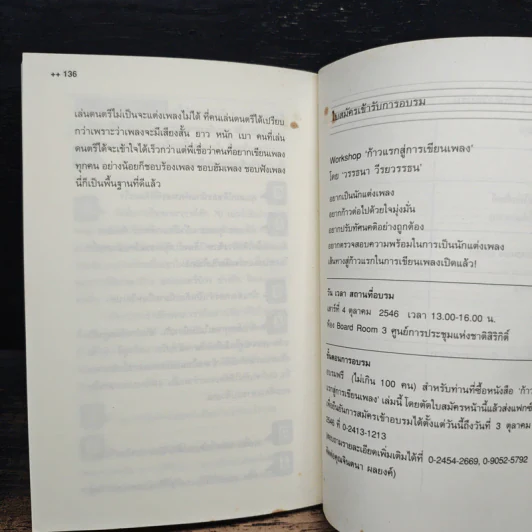 ++ 136
เล่นดนตรีไม่เป็นจะแต่งเพลงไม่ได้ ที่คนเล่นดนตรีได้เปรียบ
กว่าเพราะว่าเพลงจะมีเสียงสั้น ยาว หนัก เบา คนที่เล่น
ดนตรีได้จะเข้าใจได้เร็วกว่าแต่พี่เชื่อว่าคนที่อยากเขียนเพลง
ทุกคน อย่างน้อยก็ชอบร้องเพลง ชอบฮัมเพลง ชอบฟังเพลง
นี่ก็เป็นพื้นฐานที่ดีแล้ว
ใบสมัครเข้ารับการอบรม
Workshop 'ก้าวแรกสู่การเขียนเพลง'
โดย 'วรรธนา วีรยวรรธน'
อยากเป็นนักแต่งเพลง
อยากก้าวต่อไปด้วยใจมุ่งมั่น
อยากปรับทัศนคติอย่างถูกต้อง
อยากตรวจสอบความพร้อมในการเป็นนักแต่งเพลง
เส้นทางสู่ก้าวแรกในการเขียนเพลงเปิดแล้ว!
วัน เวลา สถานที่อบรม
เสาร์ที่ 4 ตุลาคม 2546 เวลา 13.00-16.00 น.
ห้อง Board Room 3 ศูนย์การประชุมแห่งชาติสิริกิติ์
ขั้นตอนการอบรม
อบรมฟรี (ไม่เกิน 100 คน) สำหรับท่านที่ซื้อหนังสือ 'ก้าว
แรกสู่การเขียนเพลง' เล่มนี้ โดยตัดใบสมัครหน้านี้แล้วส่งแฟกซ์
เพื่อยืนยันการสมัครเข้าอบรมได้ตั้งแต่วันนี้ถึงวันที่ 3 ตุลาคม
2546 ที่ 0-2413-1213
สอบถามรายละเอียดเพิ่มเติมได้ที่ 0-2454-2669, 0-9052-5792
จินตนา ผลยงค์)